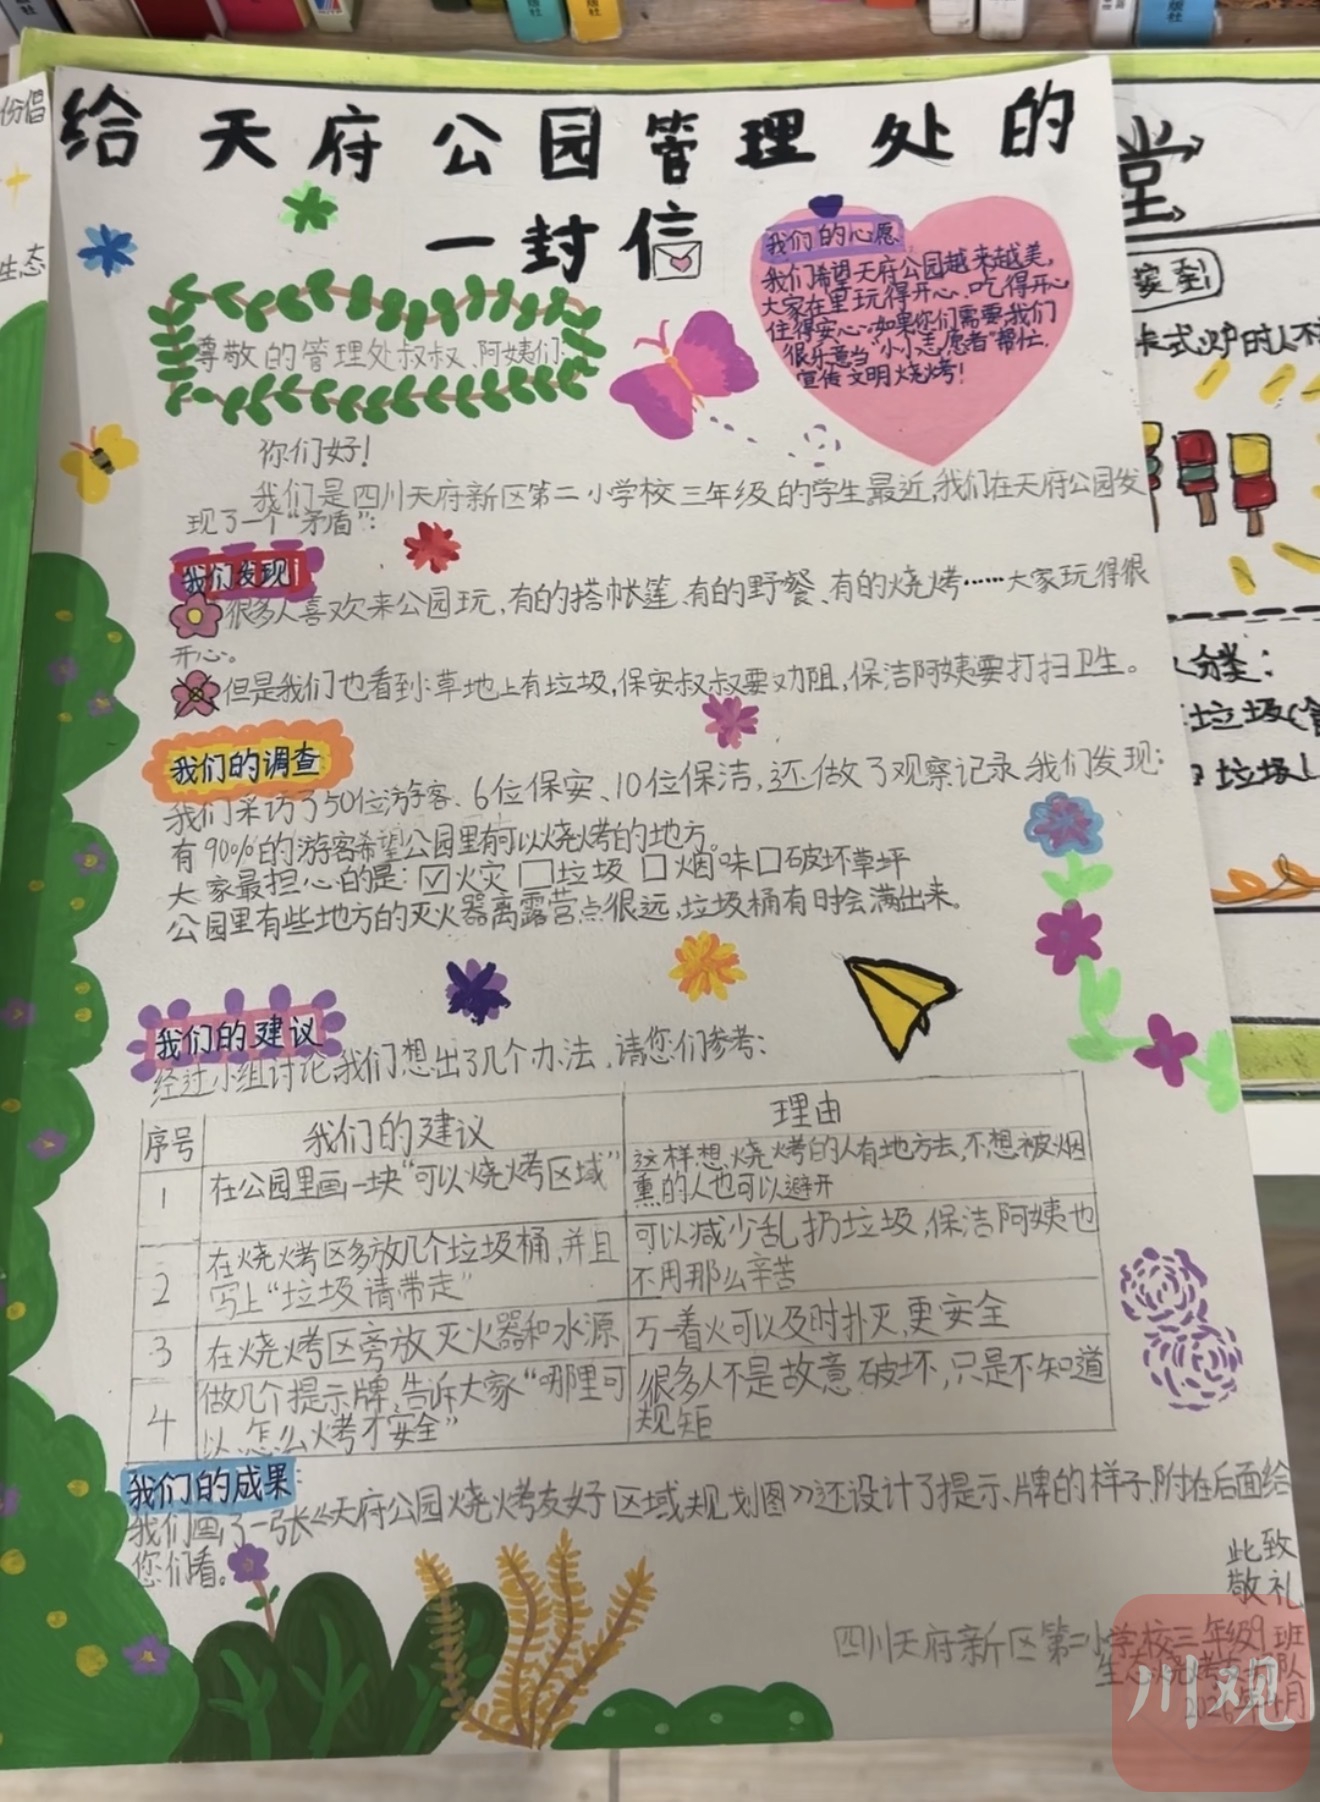 给天府公园管理处的
一封信
我们的心愿
我们希望天府公园越来越美,
大家在里玩得开心、吃得开心
住得安心…如果你们需要我们
很乐意当"小小志愿者"帮忙.
宣传文明烧烤!
尊敬的管理处叔叔、阿姨们:
你们好!
我们是四川天府新区第二小学校三年级的学生,最近,我们在天府公园发
现了一个"矛盾":
我们发现
很多人喜欢来公园玩,有的搭帐篷、有的野餐、有的烧烤……大家玩得很
开心。
但是我们也看到:草地上有垃圾,保安叔叔要劝阻,保洁阿姨要打扫卫生。
我们的调查
我们采访了50位游客、6位保安、10位保洁,还做了观察记录,我们发现:
有90%的游客希望公园里有可以烧烤的地方。
大家最担心的是:☑火灾 □垃圾 □烟味□破坏草坪
公园里有些地方的灭火器离露营点很远,垃圾桶有时会满出来。
我们的建议
经过小组讨论,我们想出了几个办法,请您们参考:
序号 我们的建议 理由
1 在公园里画一块"可以烧烤区域" 这样想烧烤的人有地方去,不想被烟
熏的人也可以避开
2 在烧烤区多放几个垃圾桶,并且 可以减少乱扔垃圾,保洁阿姨也
写上"垃圾请带走" 不用那么辛苦
3 在烧烤区旁放灭火器和水源 万一着火可以及时扑灭,更安全
4 做几个提示牌,告诉大家"哪里可 很多人不是故意破坏,只是不知道
以、怎么烤才安全" 规矩
我们的成果:
我们画了一张《天府公园烧烤友好区域规划图》还设计了提示牌的样子,附在后面给
您们看。
此致
敬礼
四川天府新区第二小学校三年级9班
生态烧烤
川观
份倡
生态
堂
卡式炉时人不
分类:
垃圾
垃圾